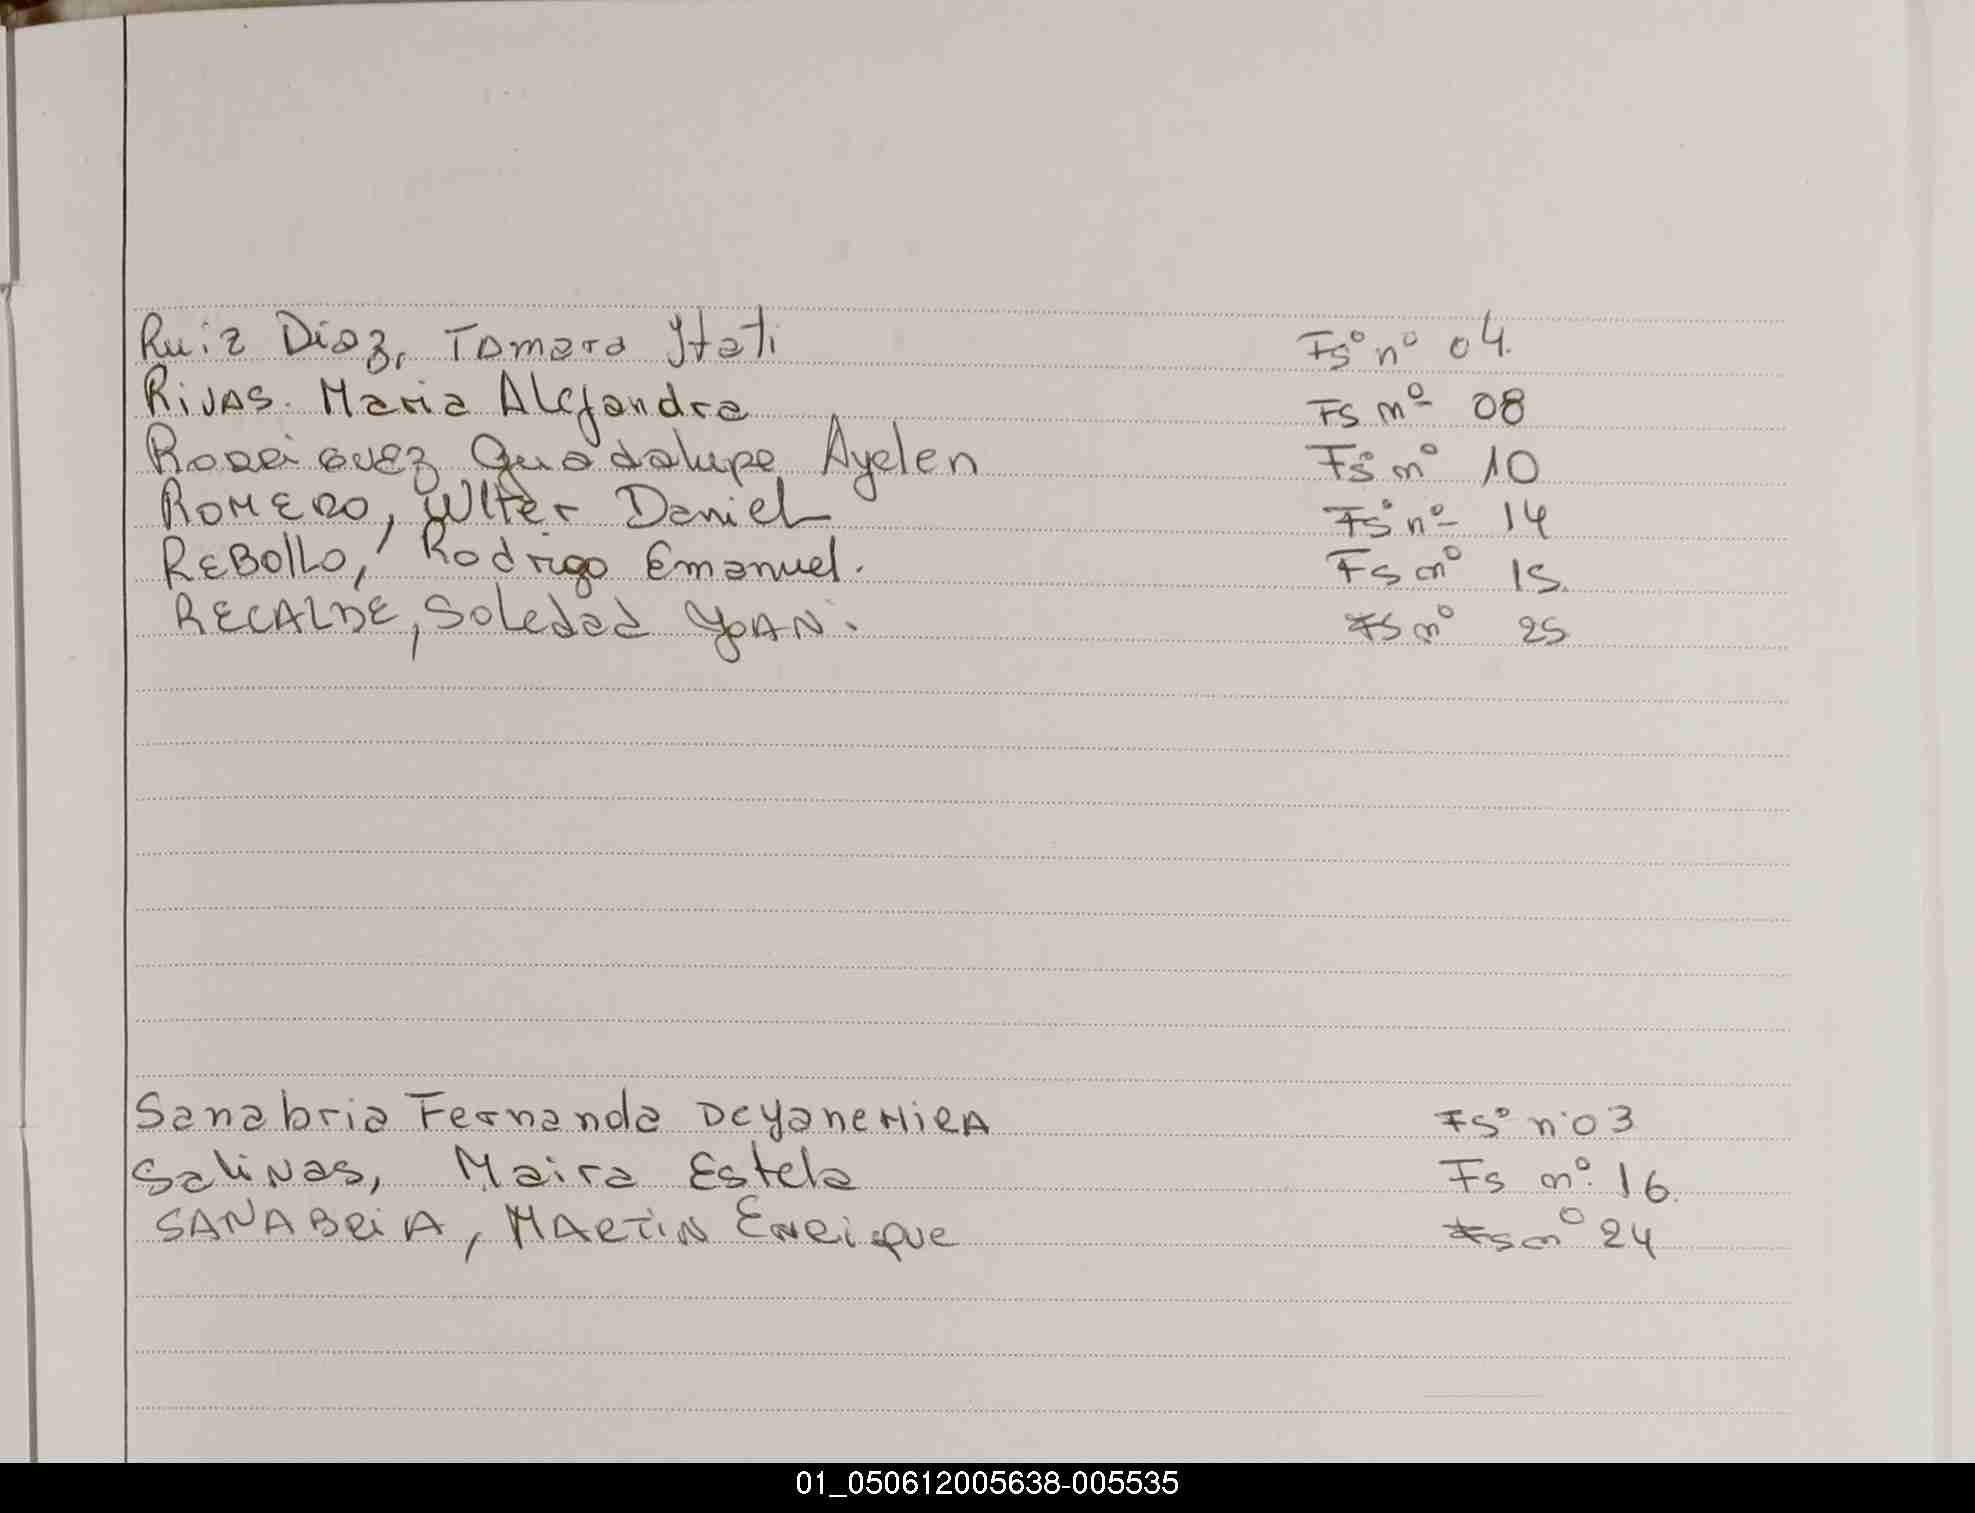 Ruiz Diaz, Tamara Itati Fsº nº 04.
Rivas. Maria Alejandra Fs nº 08
Rodriguez Guadalupe Ayelen Fsº nº 10
ROMERO, Wlter Daniel Fsº nº 14
REBOllO, Rodrigo Emanuel. Fs nº 15.
RECALDE, Soledad YOAN. Fs nº 25
Sanabria Fernanda DeyaneHiRA Fsº nº 03
Salinas, Maira Estela Fs nº. 16.
SANABRIA, MARTIN ENRique Fs nº 24
01_050612005638-005535